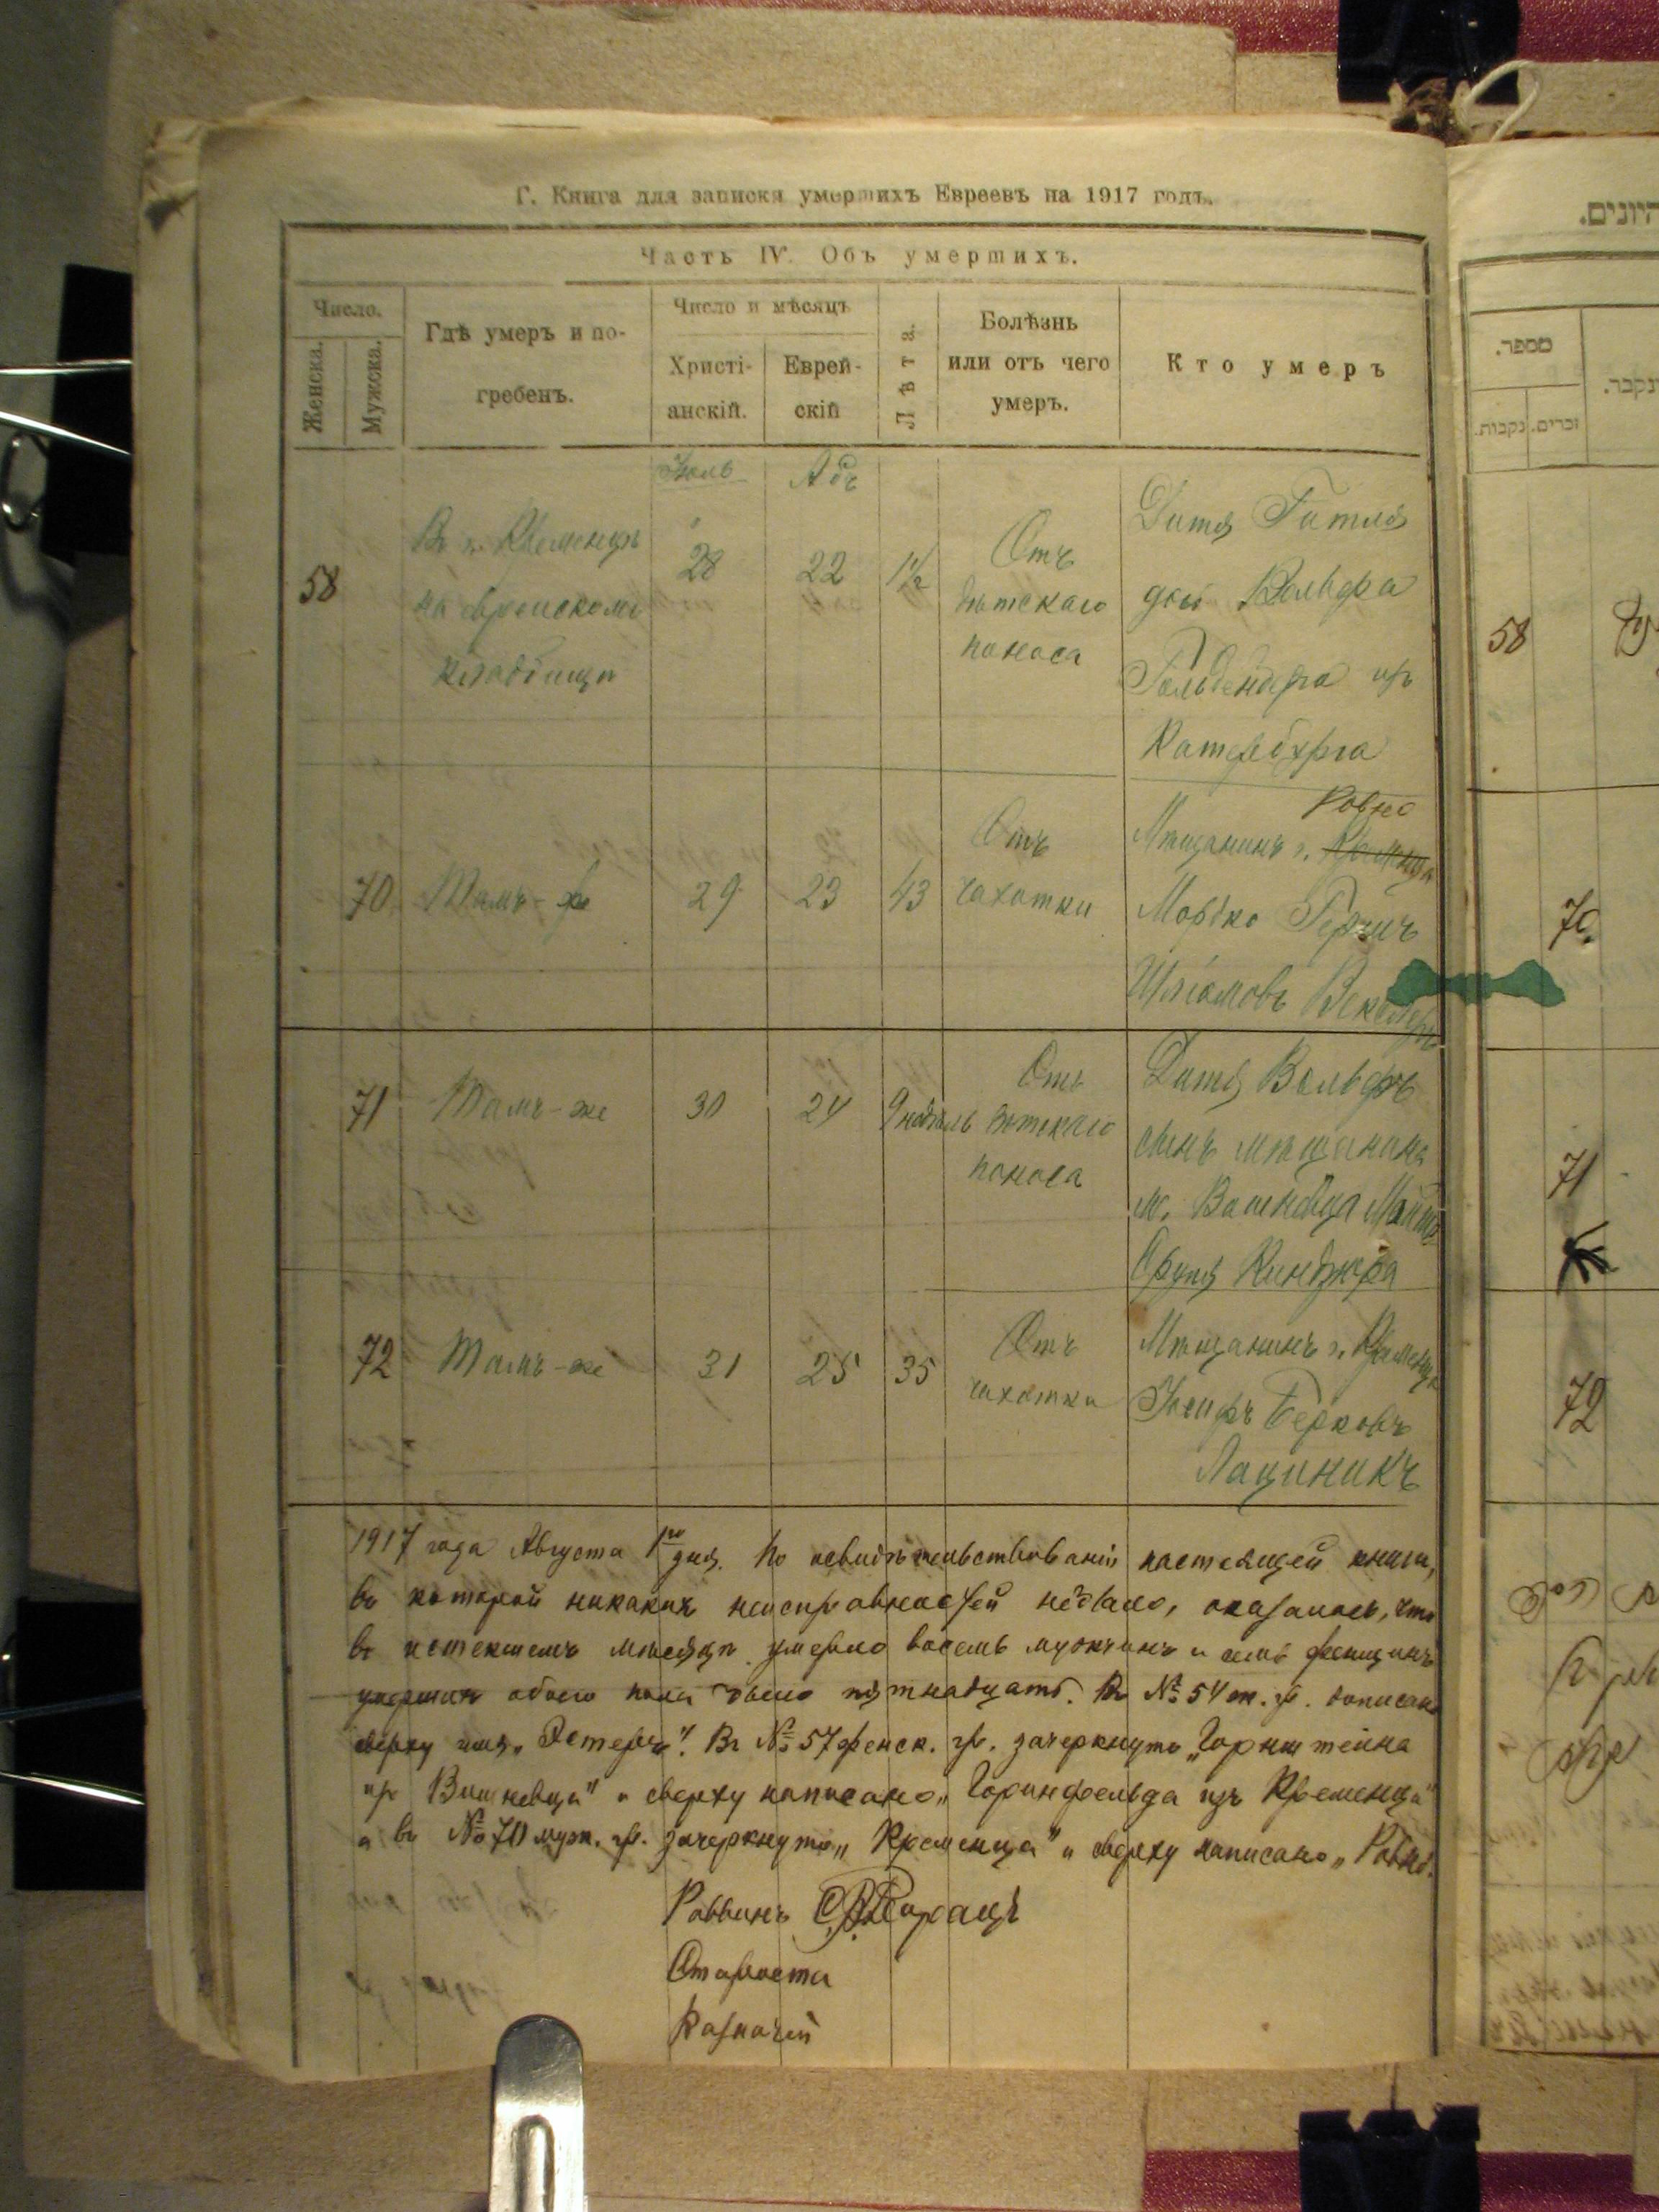 Г. Книга для записки умершихъ Евреевъ на 1917 годъ.
Часть IV. Объ умершихъ.
Число.
Женска.
Мужска.
Гдѣ умеръ и по-
гребенъ.
Число и мѣсяцъ
Христі-
анскій.
Еврей-
скій
Лѣта.
Болѣзнь
или отъ чего
умеръ.
Кто умеръ
Іюль
Абъ
58
Въ г. Кременцѣ
на еврейскомъ
кладбищѣ
28
22
1½
Отъ
дѣтскаго
поноса
Дитя Гитля
дочь Вольфа
Гольденберга изъ
Катербурга
70
Тамъ-же
29
23
43
Отъ
чахотки
Ровно
Мѣщанинъ г. Кременца
Мордко Герчик
Шліомовъ
71
Тамъ-же
30
24
9 недѣль
Отъ
дѣтскаго
поноса
Дитя Вольфъ
сынъ мѣщанина
м. Вишневца
72
Тамъ-же
31
25
35
Отъ
чахотки
Мѣщанинъ г. Кременца
Іосифъ Берковъ
Лациникъ
1917 года Августа 1го дня. По освидѣтельствованіи настоящей книги,
въ которой никакихъ неисправностей небыло, оказалось, что
въ истекшемъ мѣсяцѣ умерло восемь мужчинъ и семь женщинъ
умершихъ обоего пола было пятнадцать. Въ № 54 ж. гр. дописано
сверху имя „Эстеръ". Въ № 57 женск. гр. зачеркнуто „Горнштейна
изъ Вишневца" и сверху написано „Горинфельда изъ Кременца"
а въ № 70 муж. гр. зачеркнуто „Кременца" и сверху написано „Ровно".
Раввинъ
Староста
Казначей
היונים.
מספר.
נקבות.
זכרים.
ונקבר.
58
70
71
72